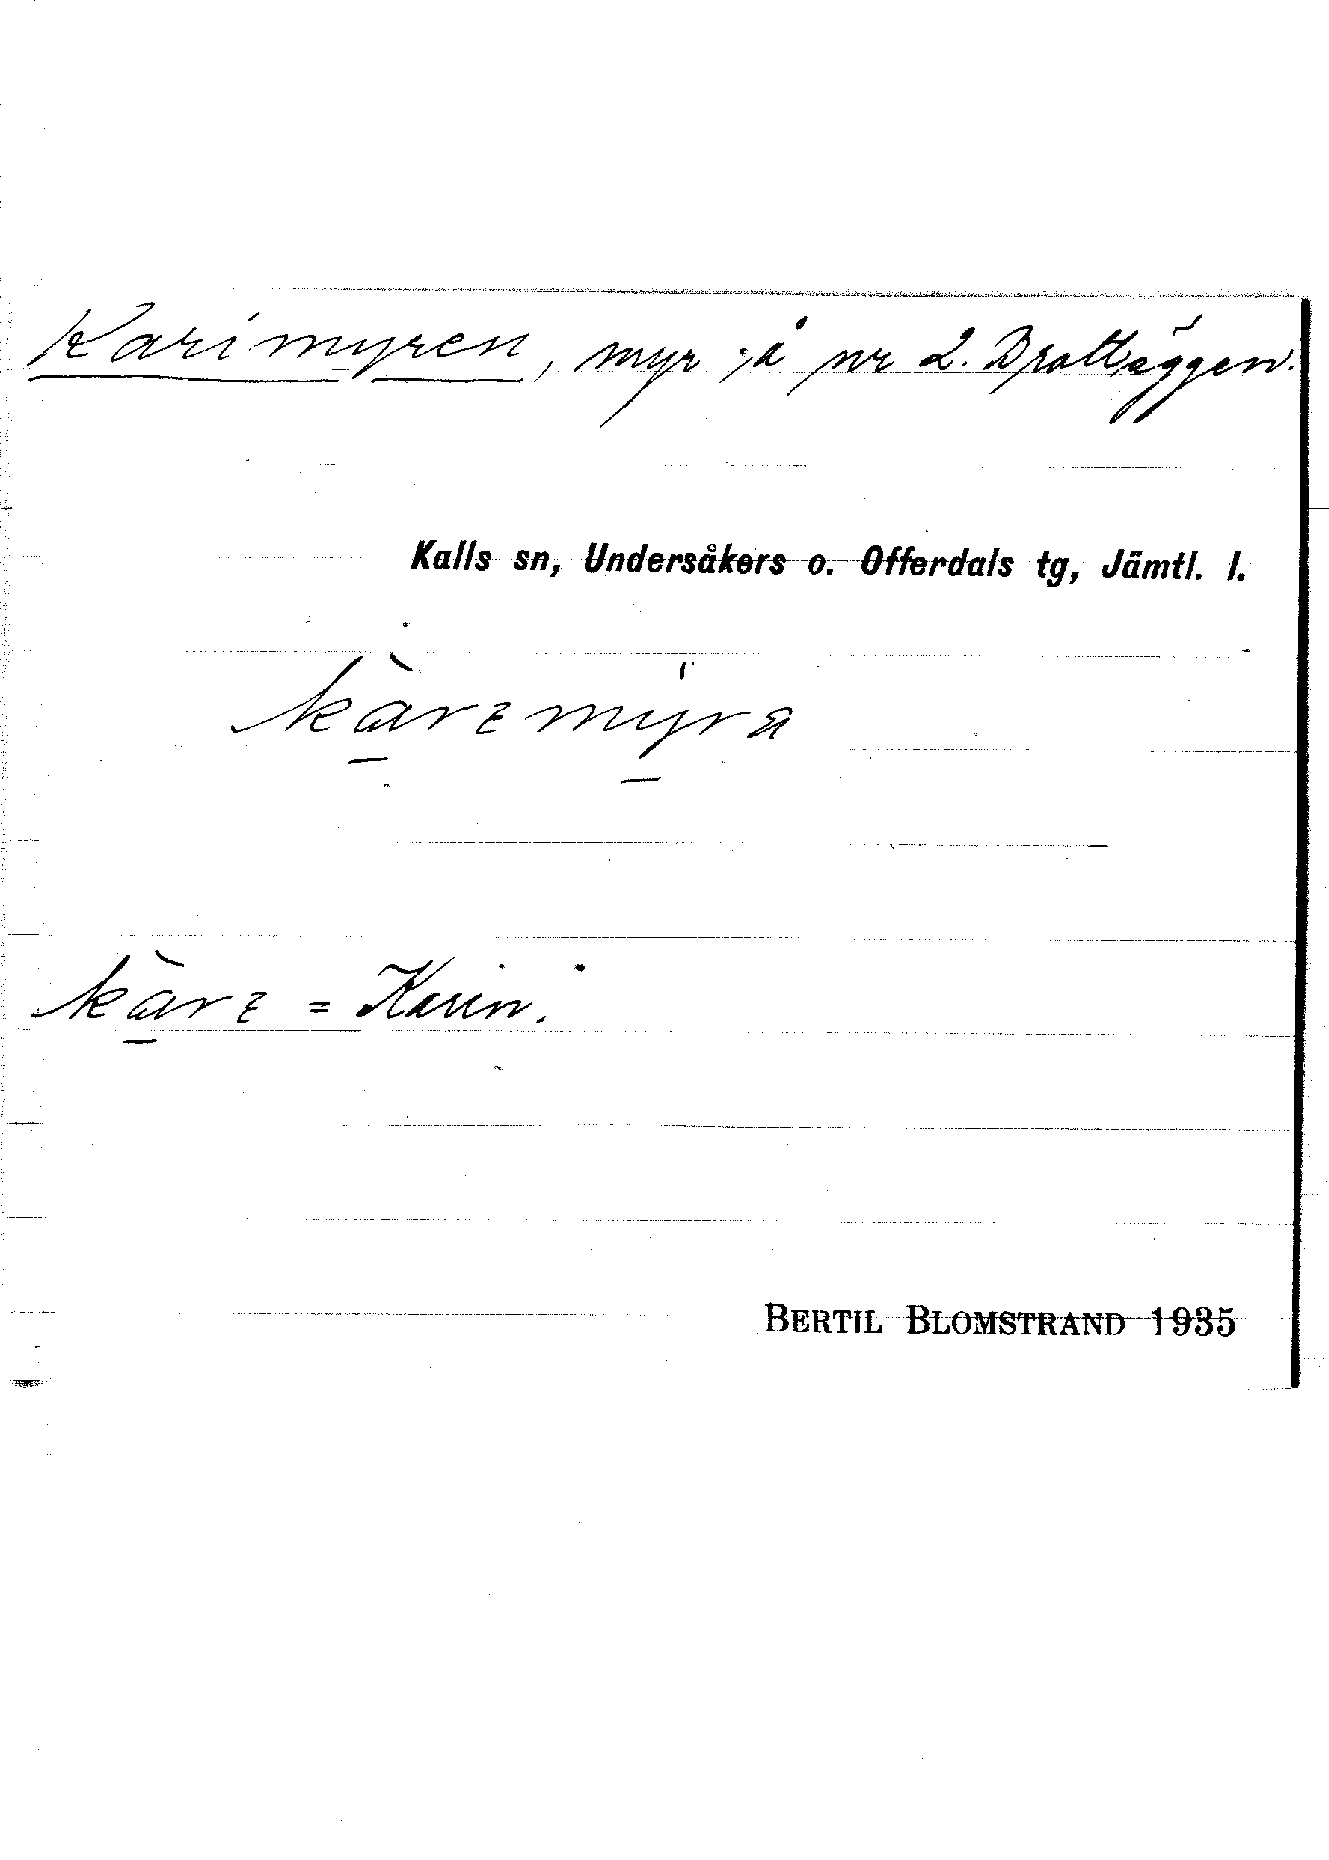 Karimyren, myr å nr 2. Brattäggen.
Kalls sn, Undersåkers o. Offerdals tg, Jämtl. l.
= Karin.
BERTIL BLOMSTRAND 1935